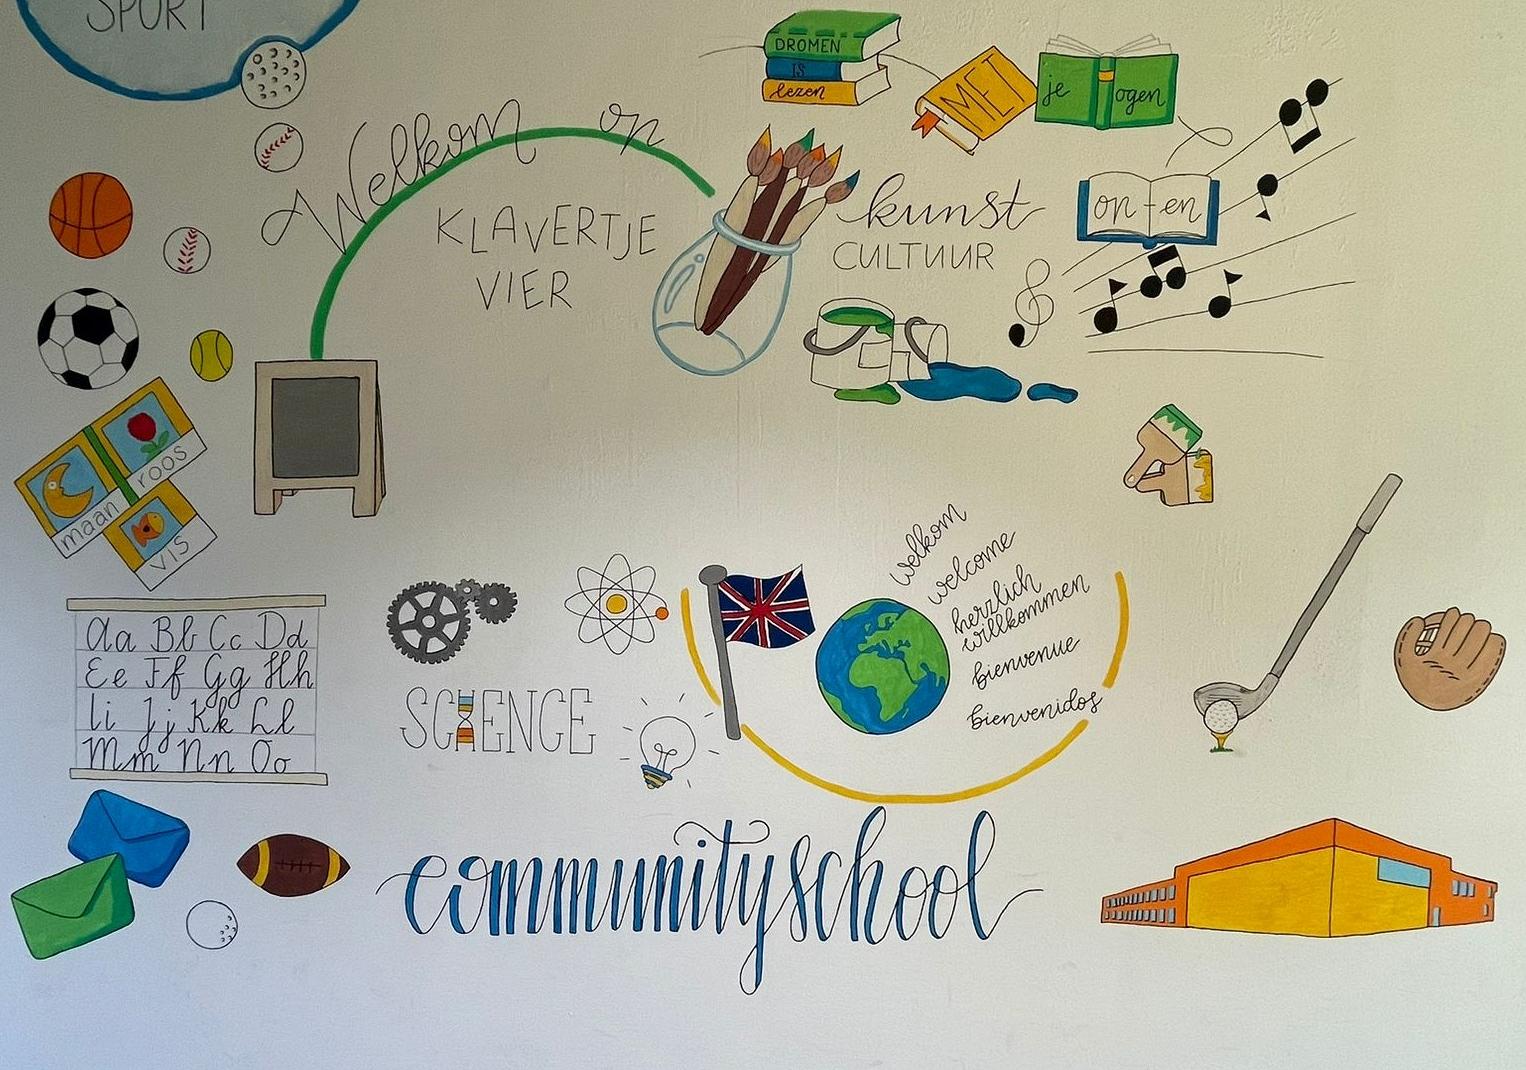 SPORT
Welkom op
KLAVERTJE
VIER
DROMEN
IS
lezen
MET
je ogen
op-en
kunst
CULTUUR
maan
roos
vis
Aa Bb Cc Dd
Ee Ff Gg Hh
Ii Jj Kk Ll
Mm Nn Oo
SCIENCE
welkom
welcome
herzlich
willkommen
bienvenue
bienvenidos
communityschool